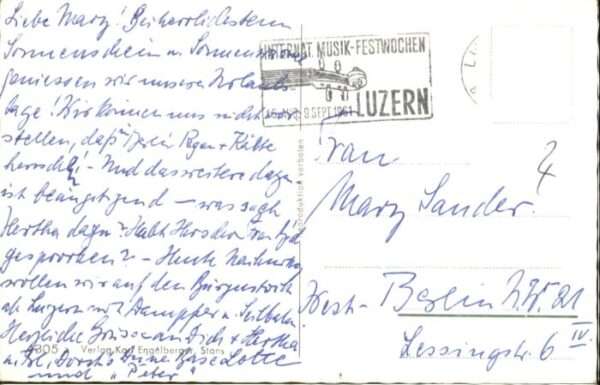 Liebe Mary! Bei herrlichstem
Sonnenschein u. Sonnen
geniessen wir unsere Urlaubs-
tage! Wir können uns nicht vor-
stellen, daß Regen + Kälte
herrscht! - Und das weitere dazu
ist beängstigend - was sagt
Hertha dazu? Habt Ihr schon
gesprochen? - Heute Nachm.
wollen wir auf den Bürgenstock
ab Luzern mit Dampfer u. Seilbahn
Herzliche Grüsse an Dich + Hertha
Deine Base Lotte
und "Peter"
4305 Verlag Karl Engelberger, Stans
Reproduktion verboten
INTERNAT. MUSIK-FESTWOCHEN
15. AUG.-9. SEPT. 1961 LUZERN
Frau
Mary Sander
4
West-Berlin N.W. 21
Lessingstr. 6 IV.